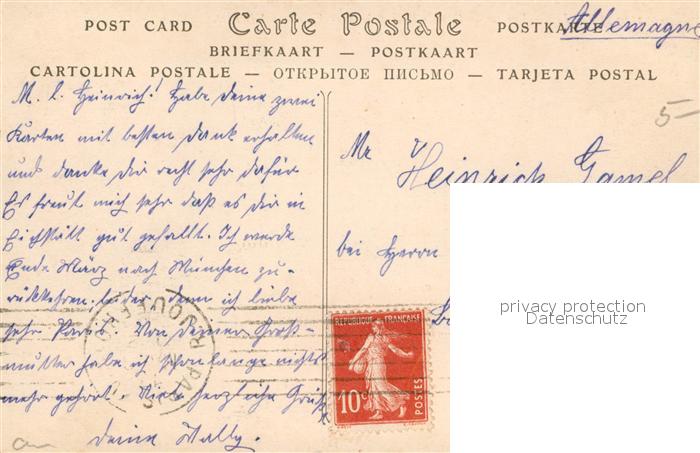 Allemagne
POST CARD Carte Postale POSTKARTE
BRIEFKAART — POSTKAART
CARTOLINA POSTALE — ОТКРЫТОЕ ПИСЬМО — TARJETA POSTAL
5-
M. l. Heinrich! Habe deine zwei
Karten mit bestem Dank erhalten
und danke dir recht sehr dafür
Es freut mich sehr daß es dir in
Eichstätt gut gefällt. Ich werde
Ende März nach München zu-
rückkehren. Leider, denn ich liebe
sehr Paris. Von deiner Groß-
mutter habe ich schon lange nichts
mehr gehört. Viele herzliche Grüße
deine Wally.
Mr Heinrich Gamel
bei Herrn
privacy protection
Datenschutz
REPUBLIQUE FRANÇAISE
10c
POSTES
PARIS